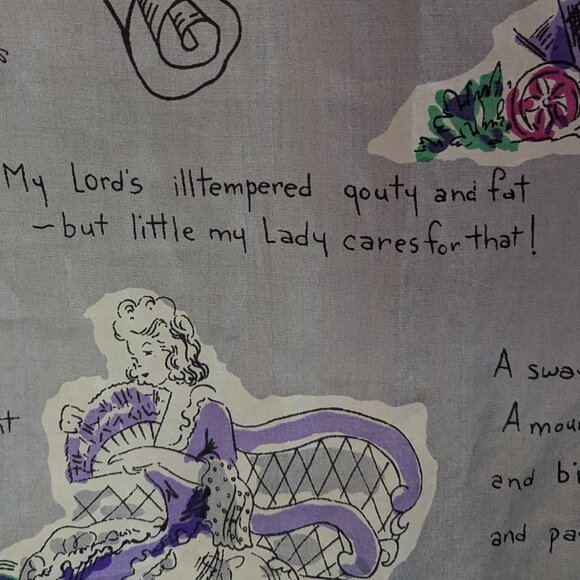 My Lord's illtempered gouty and fat
—but little my Lady cares for that!
A
and
and